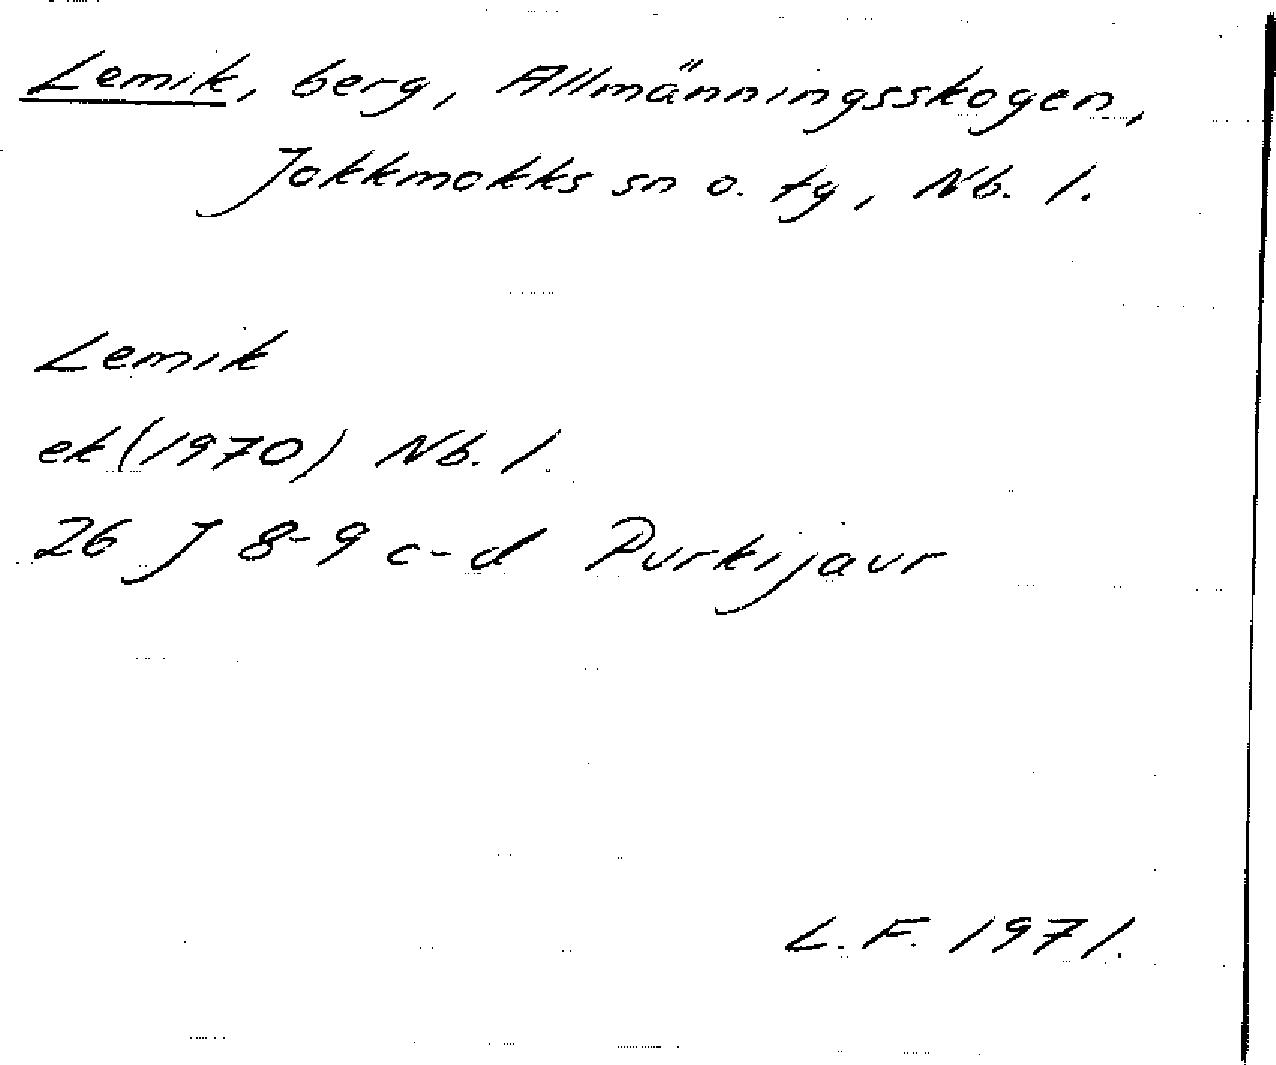 Lemik, berg, Allmänningsskogen,
Jokkmokks sn o. tg, Nb. l.
Lemik
ek (1970) Nb. l.
26 J 8-9 c-d Purkijaur
L. F. 1971.